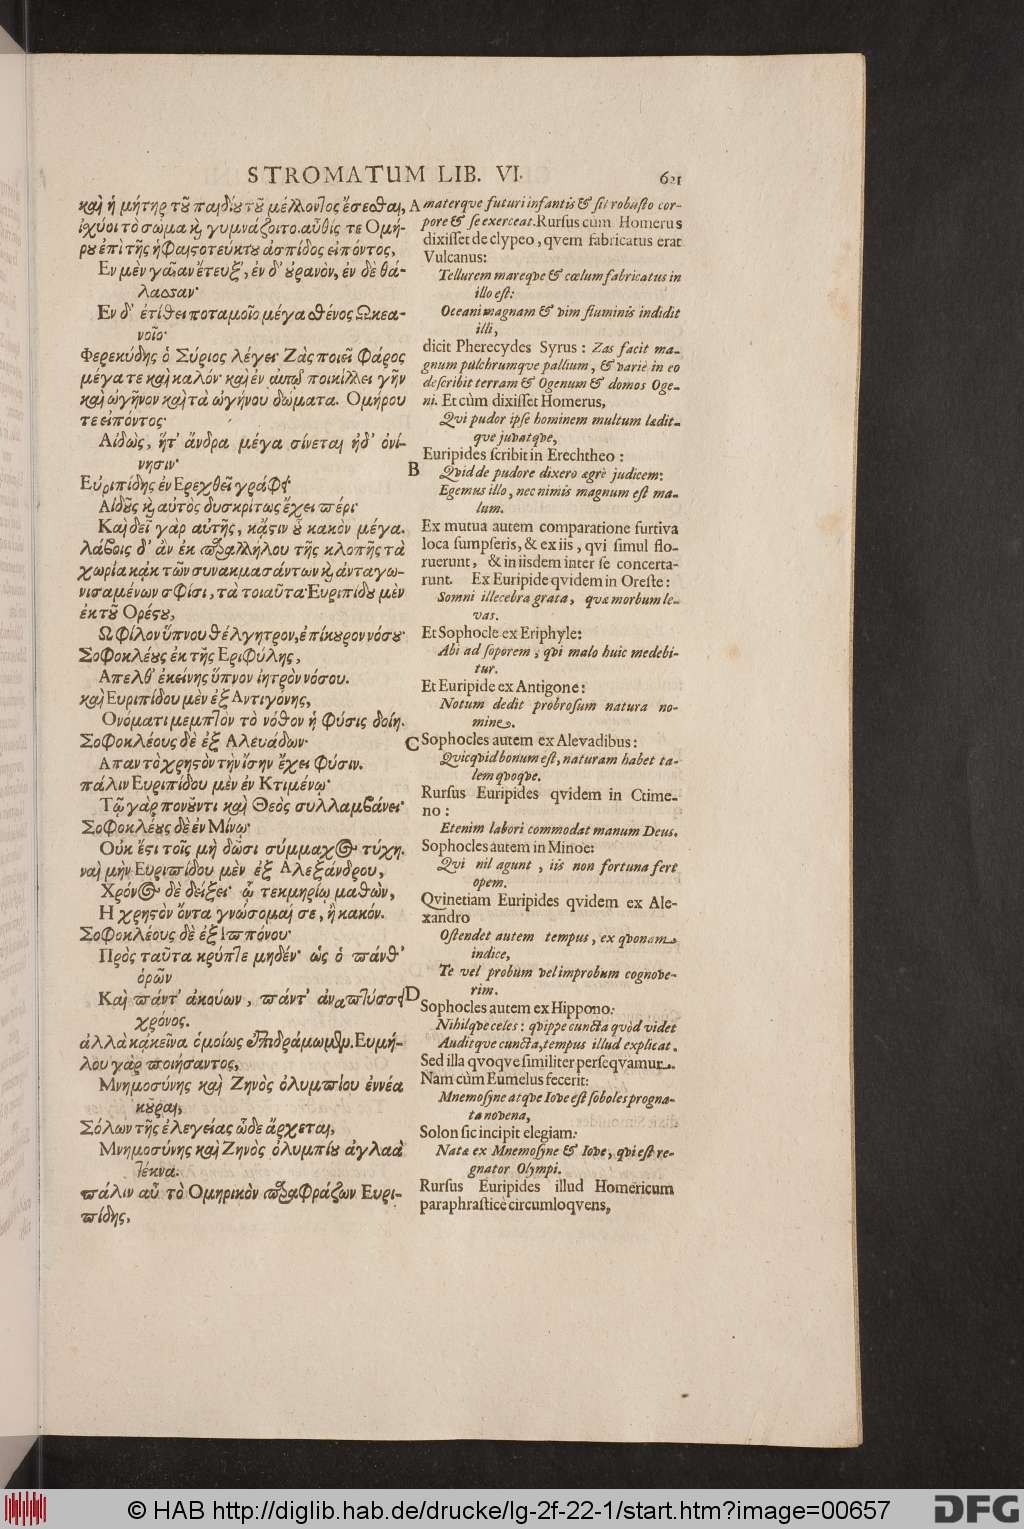 STROMATUM LIB. VI.
621
καὶ ἡ μήτηρ τοῦ παιδίου τοῦ μέλλοντος ἔσεσθαι,
ἰχύοι τὸ σῶμα καὶ γυμνάζοιτο. αὖθίς τε Ομή-
ρου ἐπὶ τῆς ἡφαιστοτεύκτου ἀσπίδος εἰπόντος,
Εν μὲν γαῖαν ἔτευξ', ἐν δ' οὐρανὸν, ἐν δὲ θά-
λασσαν·
Εν δ' ἐτίθει ποταμοῖο μέγα σθένος Ωκεα-
νοῖο·
Φερεκύδης ὁ Σύριος λέγει· Ζὰς ποιεῖ Φάρος
μέγα τε καὶ καλόν· καὶ ἐν αὐτῷ ποικίλλει γῆν
καὶ ὠγῆνον καὶ τὰ ὠγήνου δώματα. Ομήρου
τε εἰπόντος·
Αἰδὼς, ἥτ' ἄνδρα μέγα σίνεται ἠδ' ὀνί-
νησιν·
Εὐριπίδης ἐν Ερεχθεῖ γράφει·
Αἰδοῦς καὶ αὐτὸς δυσκρίτως ἔχει πέρι·
Καὶ δεῖ γὰρ αὐτῆς, κἄστιν οὐ κακὸν μέγα.
λάβοις δ' ἂν ἐκ παραλλήλου τῆς κλοπῆς τὰ
χωρία κἀκ τῶν συνακμασάντων καὶ ἀνταγω-
νισαμένων σφίσι, τὰ τοιαῦτα· Εὐριπίδου μὲν
ἐκ τοῦ Ορέστου,
Ω φίλον ὕπνου θέλγητρον, ἐπίκουρον νόσου·
Σοφοκλέους ἐκ τῆς Εριφύλης,
Απελθ' ἐκείνης ὕπνον ἰητρὸν νόσου.
καὶ Ευριπίδου μὲν ἐξ Αντιγόνης,
Ονόματι μεμπτὸν τὸ νόθον ἡ φύσις δοίη.
Σοφοκλέους δὲ ἐξ Αλευάδων·
Απαν τὸ χρηστὸν τὴν ἴσην ἔχει φύσιν.
πάλιν Ευριπίδου μὲν ἐν Κτιμένῳ·
Τῷ γὰρ πονοῦντι καὶ Θεὸς συλλαμβάνει·
Σοφοκλέους δὲ ἐν Μίνῳ·
Οὐκ ἔστι τοῖς μὴ δρῶσι σύμμαχος τύχη.
ναὶ μὴν Ευριπίδου μὲν ἐξ Αλεξάνδρου,
Χρόνος δὲ δείξει· ᾧ τεκμηρίῳ μαθὼν,
Η χρηστὸν ὄντα γνώσομαί σε, ἢ κακόν.
Σοφοκλέους δὲ ἐξ Ιππόνου·
Πρὸς ταῦτα κρύπτε μηδέν· ὡς ὁ πάνθ'
ὁρῶν
Καὶ πάντ' ἀκούων, πάντ' ἀναπτύσσει
χρόνος.
ἀλλὰ κἀκεῖνα ὁμοίως ἐπιδράμωμεν. Ευμή-
λου γὰρ ποιήσαντος,
Μνημοσύνης καὶ Ζηνὸς ὀλυμπίου ἐννέα
κοῦραι,
Σόλων τῆς ἐλεγείας ὧδε ἄρχεται,
Μνημοσύνης καὶ Ζηνὸς ὀλυμπίου ἀγλαὰ
τέκνα.
πάλιν αὖ τὸ Ομηρικὸν παραφράζων Ευρι-
πίδης,
A
B
C
D
materqve futuri infantis & sit robusto cor-
pore & se exerceat. Rursus cùm Homerus
dixisset de clypeo, qvem fabricatus erat
Vulcanus:
Tellurem mareqve & cœlum fabricatus in
illo est:
Oceani magnam & vim fluminis indidit
illi,
dicit Pherecydes Syrus: Zas facit ma-
gnum pulchrumqve pallium, & variè in eo
describit terram & Ogenum & domos Oge-
ni. Et cùm dixisset Homerus,
Qvi pudor ipse hominem multum lædit-
qve juvatqve,
Euripides scribit in Erechtheo:
Qvid de pudore dixero ægrè judicem:
Egemus illo, nec nimis magnum est ma-
lum.
Ex mutua autem comparatione furtiva
loca sumpseris, & ex iis, qvi simul flo-
ruerunt, & in iisdem inter se concerta-
runt. Ex Euripide qvidem in Oreste:
Somni illecebra grata, quæ morbum le-
vas.
Et Sophocle ex Eriphyle:
Abi ad soporem, qvi malo huic medebi-
tur.
Et Euripide ex Antigone:
Notum dedit probrosum natura no-
mine.
Sophocles autem ex Alevadibus:
Qvicqvid bonum est, naturam habet ta-
lem qvoqve.
Rursus Euripides qvidem in Ctime-
no:
Etenim labori commodat manum Deus.
Sophocles autem in Minoe:
Qvi nil agunt, iis non fortuna fert
opem.
Qvinetiam Euripides qvidem ex Ale-
xandro
Ostendet autem tempus, ex qvonam
indice,
Te vel probum vel improbum cognove-
rim.
Sophocles autem ex Hippono:
Nihilqve celes: qvippe cuncta qvòd videt
Auditqve cuncta, tempus illud explicat.
Sed illa qvoqve similiter perseqvamur.
Nam cùm Eumelus fecerit:
Mnemosyne atqve Iove est soboles progna-
ta novena,
Solon sic incipit elegiam:
Natæ ex Mnemosyne & Iove, qvi est re-
gnator Olympi.
Rursus Euripides illud Homericum
paraphrasticè circumloqvens,
© HAB http://diglib.hab.de/drucke/lg-2f-22-1/start.htm?image=00657
DFG